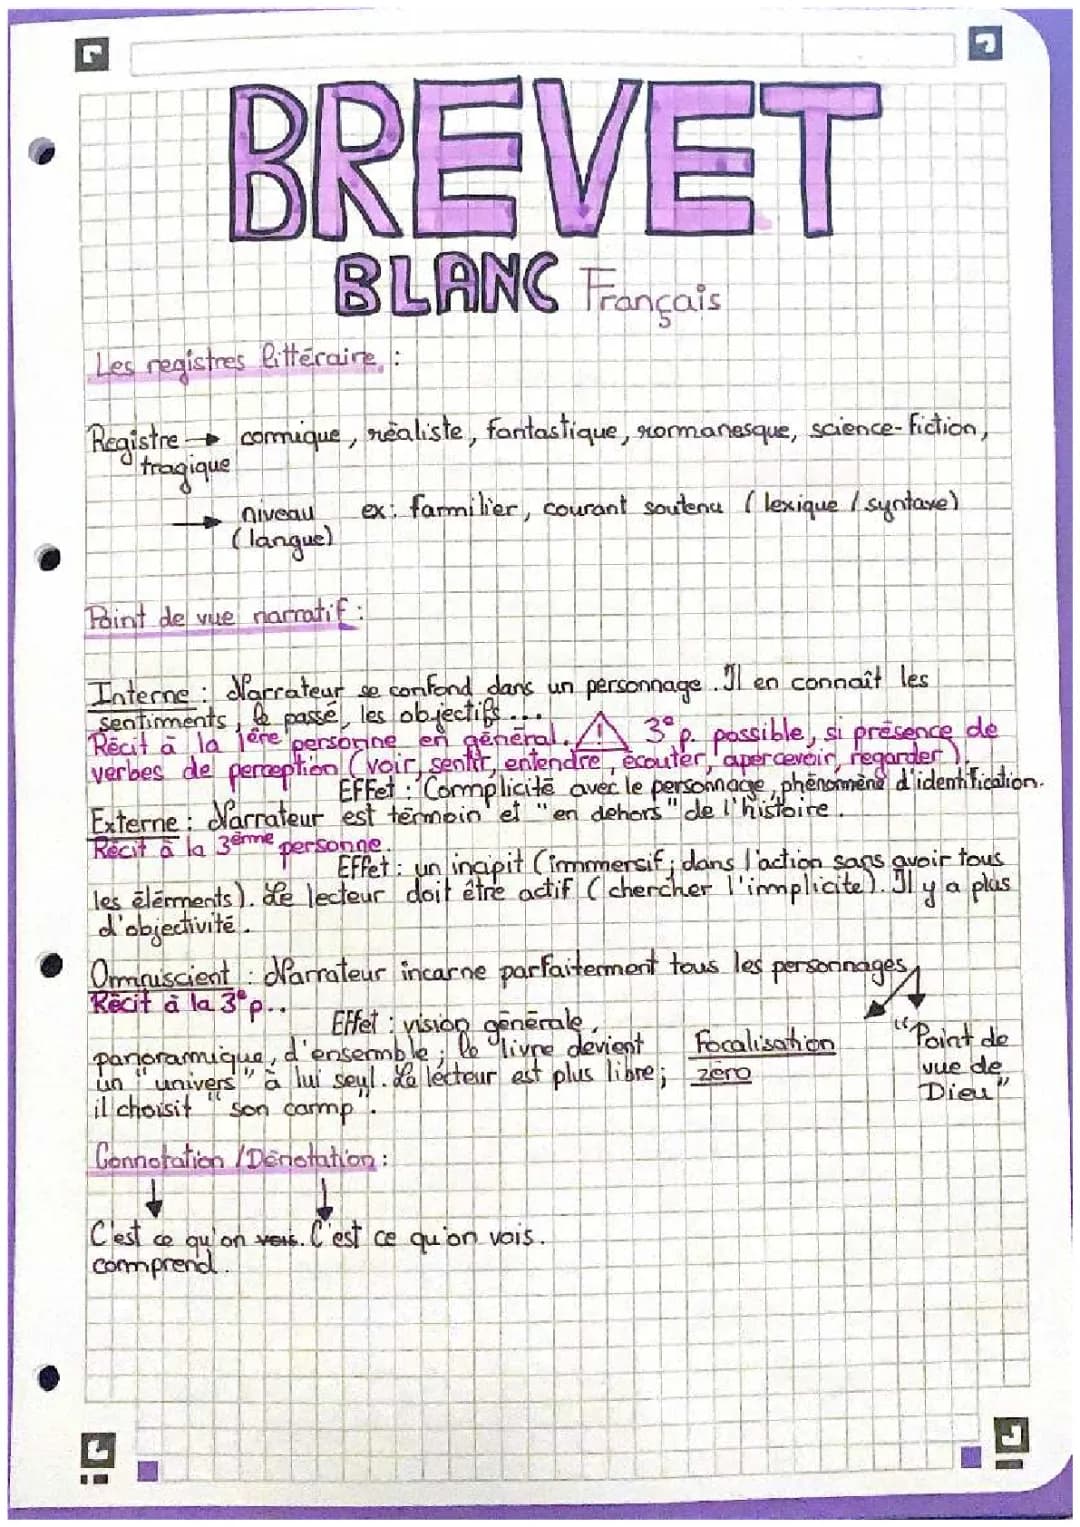 BREVET
BLANC Français
Les registres littéraire :
Registre → comique, réaliste, fantastique, romanesque, science-fiction,
tragique
→ niveau ex: familier, courant soutenu (lexique / syntaxe)
(langue)
Point de vue narratif :
Interne : Narrateur se confond dans un personnage. Il en connaît les
sentiments, le passé, les objectifs ...
Récit à la 1ère personne en général. ⚠ 3e p. possible, si présence de
verbes de perception (voir, sentir, entendre, écouter, apercevoir, regarder).
Effet : Complicité avec le personnage, phénomène d'identification.
Externe : Narrateur est témoin et "en dehors" de l'histoire.
Récit à la 3ème personne.
Effet : un incipit (immersif ; dans l'action sans avoir tous
les éléments). Le lecteur doit être actif (chercher l'implicite). Il y a plus
d'objectivité.
Omniscient : Narrateur incarne parfaitement tous les personnages
Récit à la 3e p...
Effet : vision générale,
panoramique, d'ensemble ; le livre devient Focalisation "Point de
un "univers" à lui seul. Le lecteur est plus libre ; zéro vue de
il choisit "son camp". Dieu"
Connotation / Dénotation :
C'est ce qu'on vois. C'est ce qu'on vois.
comprend.